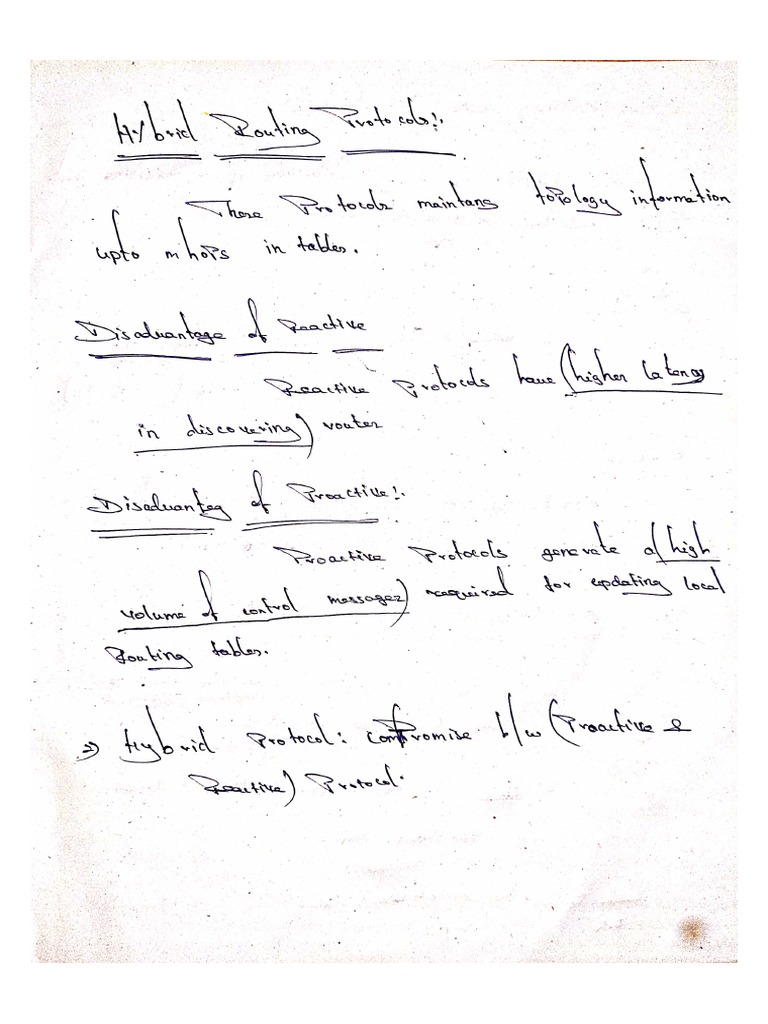 Hybrid Routing Protocols:.
These Protocols maintans topology information
upto m hops in tables.
Disadvantage of Reactive
Reactive Protocols have (higher latency
in discovering) routes
Disadvanteg of Proactive:.
Proactive Protocols generate a (high
volume of control messages) required for updating local
Routing tables.
⇒ Hybrid Protocol: compromise b/w (Proactive &
Reactive) Protocol.